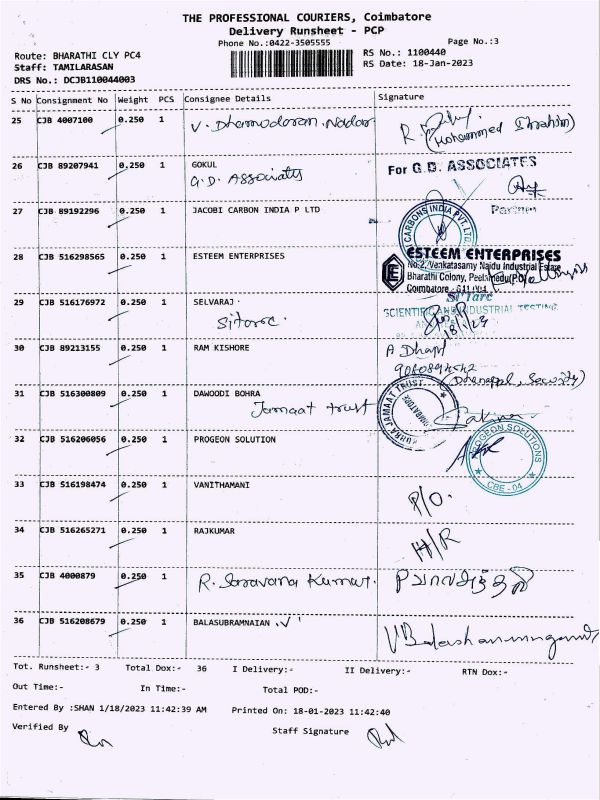 THE PROFESSIONAL COURIERS, Coimbatore
Delivery Runsheet - PCP
Phone No.:0422-3505555
Page No.:3
Route: BHARATHI CLY PC4
RS No.: 1100440
Staff: TAMILARASAN
RS Date: 18-Jan-2023
DRS No.: DCJB110044003
S No Consignment No Weight PCS Consignee Details Signature
25 CJB 4007100 0.250 1 V. Dhamodaran. Nadar
(Mohammed Ibrahim)
26 CJB 89207941 0.250 1 GOKUL For G.D. ASSOCIATES
G.D. Associates
Partner
27 CJB 89192296 0.250 1 JACOBI CARBON INDIA P LTD
CARBONS INDIA PVT. LTD.
28 CJB 516298565 0.250 1 ESTEEM ENTERPRISES ESTEEM ENTERPRISES
No.2, Venkatasamy Naidu Industrial Estate
Bharathi Colony, Peelamedu(P.O)
Coimbatore - 641 004
29 CJB 516176972 0.250 1 SELVARAJ Si'Tarc
Sitarc. SCIENTIFIC AND INDUSTRIAL TESTING
18/1/23
30 CJB 89213155 0.250 1 RAM KISHORE A Dhapl
(Dhanappal, Security)
31 CJB 516300809 0.250 1 DAWOODI BOHRA
Jamaat trust
BOHRA JAMAAT TRUST COIMBATORE
32 CJB 516206056 0.250 1 PROGEON SOLUTION
PROGEON SOLUTIONS
CBE - 04
33 CJB 516198474 0.250 1 VANITHAMANI P/O.
34 CJB 516265271 0.250 1 RAJKUMAR H/R
35 CJB 4000879 0.250 1 R. Saravana Kumar.
36 CJB 516208679 0.250 1 BALASUBRAMNAIAN .V
Tot. Runsheet:- 3 Total Dox:- 36 I Delivery:- II Delivery:- RTN Dox:-
Out Time:- In Time:- Total POD:-
Entered By :SHAN 1/18/2023 11:42:39 AM Printed On: 18-01-2023 11:42:40
Verified By Staff Signature